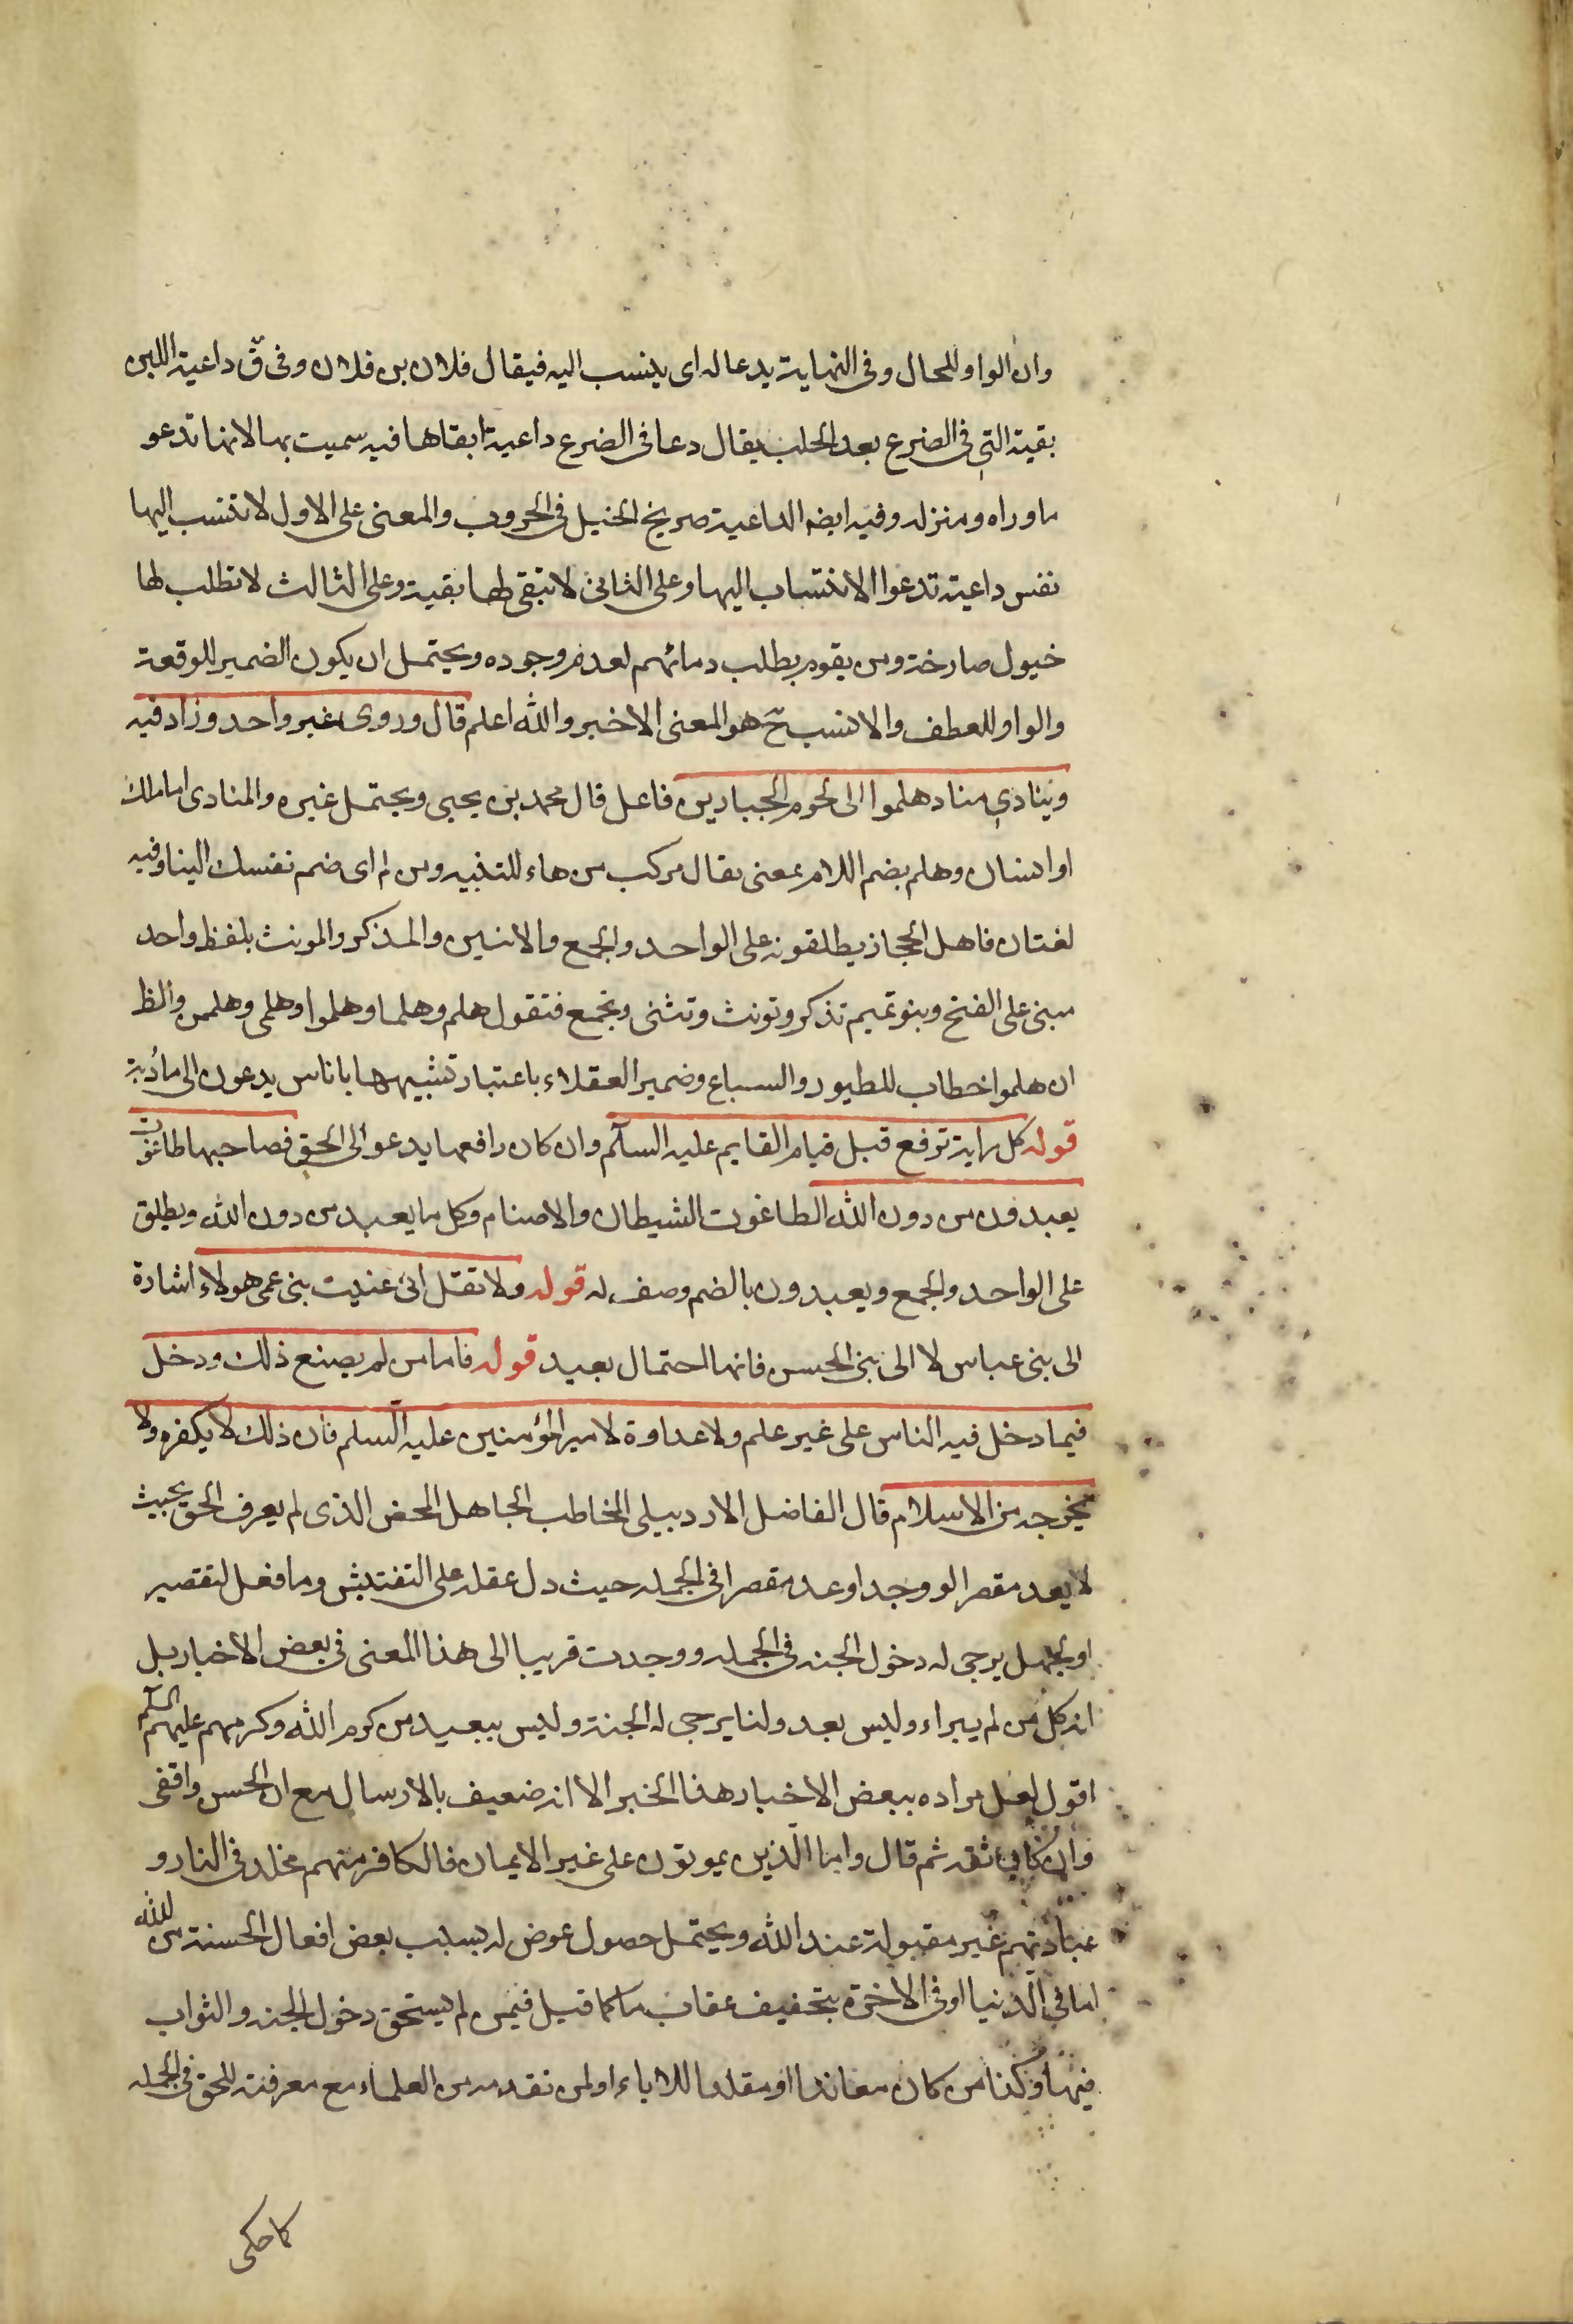 وان الواو للحال وفى النهاية يدعا له اى ينسب اليه فيقال فلان بن فلان وفى ق داعية اللبن
بقية التى فى الضرع بعد الحلب يقال دعا فى الضرع داعية ابقاها فيه سميت بها لانها تدعو
ماوراه ومنزله وفيه ايضا الداعية صريخ الخيل فى الحروب والمعنى على الاول لا تنتسب اليها
نفس داعية تدعوا الانتساب اليها وعلى الثانى لا تبقى لها بقية وعلى الثالث لا تطلب لها
خيول صارخة ومن يقوم بطلب دمائهم لعدم وجوده ويحتمل ان يكون الضمير للوقعة
والواو للعطف والانسب ح هو المعنى الاخير والله اعلم قال وروى غير واحد وزاد فيه
وينادى مناد هلموا الى لحوم الجبارين فاعل قال محمد بن يحيى ويحتمل غيره والمنادى اما ملك
او انسان وهلم بضم اللام بمعنى تعال مركب من هاء للتنبيه ومن لم اى ضم نفسك الينا وفيه
لغتان فاهل الحجاز يطلقونه على الواحد والجمع والاثنين والمذكر والمونث بلفظ واحد
مبنى على الفتح وبنو تميم تذكر وتونث وتثنى وتجمع فتقول هلم وهلما وهلموا وهلمى وهلممن والظ
ان هلموا خطاب للطيور والسباع وضمير العقلاء باعتبار تشبيهها باناس يدعون الى مأدبة
قوله كل راية ترفع قبل قيام القايم عليه السلم وان كان رافعها يدعو الى الحق فصاحبها طاغوت
يعبدون من دون الله الطاغوت الشيطان والاصنام وكل ما يعبد من دون الله ويطلق
على الواحد والجمع ويعبدون بالضم وصف له قوله ولا تقل انى عنيت بنى عمى هولاء اشارة
الى بنى عباس لا الى بنى الحسن فانها احتمال بعيد قوله فاما من لم يصنع ذلك ودخل
فيما دخل فيه الناس على غير علم ولا عداوة لامير المؤمنين عليه السلم فان ذلك لا يكفره ولا
يخرجه من الاسلام قال الفاضل الاردبيلى المخاطب الجاهل المحض الذى لم يعرف الحق بحيث
لا يعد مقصرا لو وجد او عد مقصرا فى الجمله حيث دل عقله على التفتيش وما فعل لتقصير
او لجهل يرجى له دخول الجنه فى الجمله ووجدت قريبا الى هذا المعنى فى بعض الاخبار بل
انه كل من لم يبراء وليس بعدو لنا يرجى له الجنة وليس ببعيد من كرم الله وكرمهم عليهم السلم
اقول لعل مراده ببعض الاخبار هذا الخبر الا انه ضعيف بالارسال مع ان الحسن واقفى
وان كان ثقه ثم قال واما الذين يموتون على غير الايمان فالكافر منهم مخلد فى النار و
عبادتهم غير مقبولة عند الله ويحتمل حصول عوض له بسبب بعض افعال الحسنة من الله
اما فى الدنيا او فى الاخرة بتخفيف عقاب ما كما قيل فيمن لم يستحق دخول الجنه والثواب
فيها وكذا من كان معاندا او مقلدا للاباء او لمن تقدمه من العلماء مع معرفته للحق فى الجمله
كما حكى